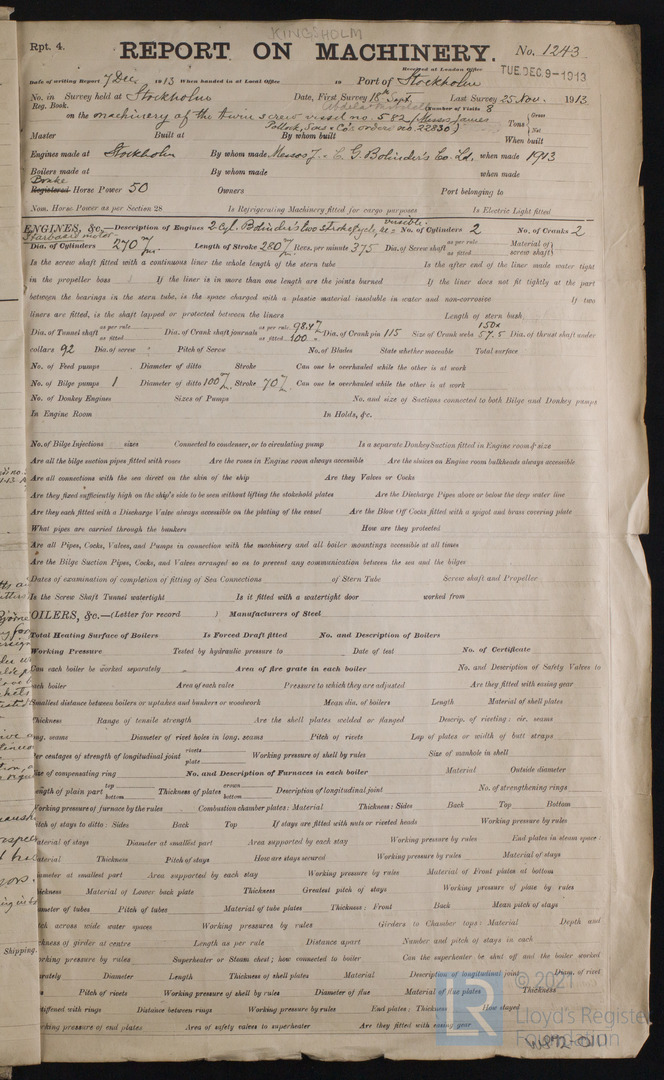 KINGSHOLM
Rpt. 4.
REPORT ON MACHINERY.
No. 1243
Received at London Office
TUE. DEC. 9-1913
Date of writing Report 7 Dec 1913 When handed in at Local Office 10 Port of Stockholm
No. in Survey held at Stockholm Date, First Survey 15th Sept. Last Survey 25 Nov. 1913
Reg. Book. Number of Visits 8
on the machinery of the twin screw vessel no. 582 (Messrs James
Pollock, Sons & Co's orders no. 22830)
Tons { Gross Net
Master Built at By whom built When built
Engines made at Stockholm By whom made Messrs J. & C. G. Bolinder's Co. Ld. when made 1913
Boilers made at By whom made when made
Brake
Registered Horse Power 50 Owners Port belonging to
Nom. Horse Power as per Section 28 Is Refrigerating Machinery fitted for cargo purposes Is Electric Light fitted
ENGINES, &c.—Description of Engines 2 Cyl. Bolinder's two stroke cycle, re= versible. No. of Cylinders 2 No. of Cranks 2
Starboard motor
Dia. of Cylinders 270 m/m Length of Stroke 280 m/m Revs. per minute 375 Dia. of Screw shaft as per rule as fitted Material of screw shaft
Is the screw shaft fitted with a continuous liner the whole length of the stern tube Is the after end of the liner made water tight
in the propeller boss If the liner is in more than one length are the joints burned If the liner does not fit tightly at the part
between the bearings in the stern tube, is the space charged with a plastic material insoluble in water and non-corrosive If two
liners are fitted, is the shaft lapped or protected between the liners Length of stern bush
Dia. of Tunnel shaft as per rule as fitted Dia. of Crank shaft journals as per rule 98.4 as fitted 100 Dia. of Crank pin 115 Size of Crank webs 150x 57.5 Dia. of thrust shaft under
collars 92 Dia. of screw Pitch of Screw No. of Blades State whether moveable Total surface
No. of Feed pumps Diameter of ditto Stroke Can one be overhauled while the other is at work
No. of Bilge pumps 1 Diameter of ditto 100 Stroke 70 Can one be overhauled while the other is at work
No. of Donkey Engines Sizes of Pumps No. and size of Suctions connected to both Bilge and Donkey pumps
In Engine Room In Holds, &c.
No. of Bilge Injections sizes Connected to condenser, or to circulating pump Is a separate Donkey Suction fitted in Engine room & size
Are all the bilge suction pipes fitted with roses Are the roses in Engine room always accessible Are the sluices on Engine room bulkheads always accessible
Are all connections with the sea direct on the skin of the ship Are they Valves or Cocks
Are they fixed sufficiently high on the ship's side to be seen without lifting the stokehold plates Are the Discharge Pipes above or below the deep water line
Are they each fitted with a Discharge Valve always accessible on the plating of the vessel Are the Blow Off Cocks fitted with a spigot and brass covering plate
What pipes are carried through the bunkers How are they protected
Are all Pipes, Cocks, Valves, and Pumps in connection with the machinery and all boiler mountings accessible at all times
Are the Bilge Suction Pipes, Cocks, and Valves arranged so as to prevent any communication between the sea and the bilges
Dates of examination of completion of fitting of Sea Connections of Stern Tube Screw shaft and Propeller
Is the Screw Shaft Tunnel watertight Is it fitted with a watertight door worked from
OILERS, &c.—(Letter for record ) Manufacturers of Steel
Total Heating Surface of Boilers Is Forced Draft fitted No. and Description of Boilers
Working Pressure Tested by hydraulic pressure to Date of test No. of Certificate
Can each boiler be worked separately Area of fire grate in each boiler No. and Description of Safety Valves to
each boiler Area of each valve Pressure to which they are adjusted Are they fitted with easing gear
Smallest distance between boilers or uptakes and bunkers or woodwork Mean dia. of boilers Length Material of shell plates
Thickness Range of tensile strength Are the shell plates welded or flanged Descrip. of riveting: cir. seams
long. seams Diameter of rivet holes in long. seams Pitch of rivets Lap of plates or width of butt straps
Per centages of strength of longitudinal joint rivets plate Working pressure of shell by rules Size of manhole in shell
Size of compensating ring No. and Description of Furnaces in each boiler Material Outside diameter
Length of plain part top bottom Thickness of plates crown bottom Description of longitudinal joint No. of strengthening rings
Working pressure of furnace by the rules Combustion chamber plates: Material Thickness: Sides Back Top Bottom
Pitch of stays to ditto: Sides Back Top If stays are fitted with nuts or riveted heads Working pressure by rules
Material of stays Diameter at smallest part Area supported by each stay Working pressure by rules End plates in steam space:
Material Thickness Pitch of stays How are stays secured Working pressure by rules Material of stays
Diameter at smallest part Area supported by each stay Working pressure by rules Material of Front plates at bottom
Thickness Material of Lower back plate Thickness Greatest pitch of stays Working pressure of plate by rules
Diameter of tubes Pitch of tubes Material of tube plates Thickness: Front Back Mean pitch of stays
Pitch across wide water spaces Working pressures by rules Girders to Chamber tops: Material Depth and
thickness of girder at centre Length as per rule Distance apart Number and pitch of stays in each
Working pressure by rules Superheater or Steam chest; how connected to boiler Can the superheater be shut off and the boiler worked
separately Diameter Length Thickness of shell plates Material Description of longitudinal joint Diam. of rivet
Pitch of rivets Working pressure of shell by rules Diameter of flue Material of flue plates Thickness
stiffened with rings Distance between rings Working pressure by rules End plates: Thickness How stayed
Working pressure of end plates Area of safety valves to superheater Are they fitted with easing gear
Shipping.
© 2021
Lloyd's Register
Foundation
W872-0111